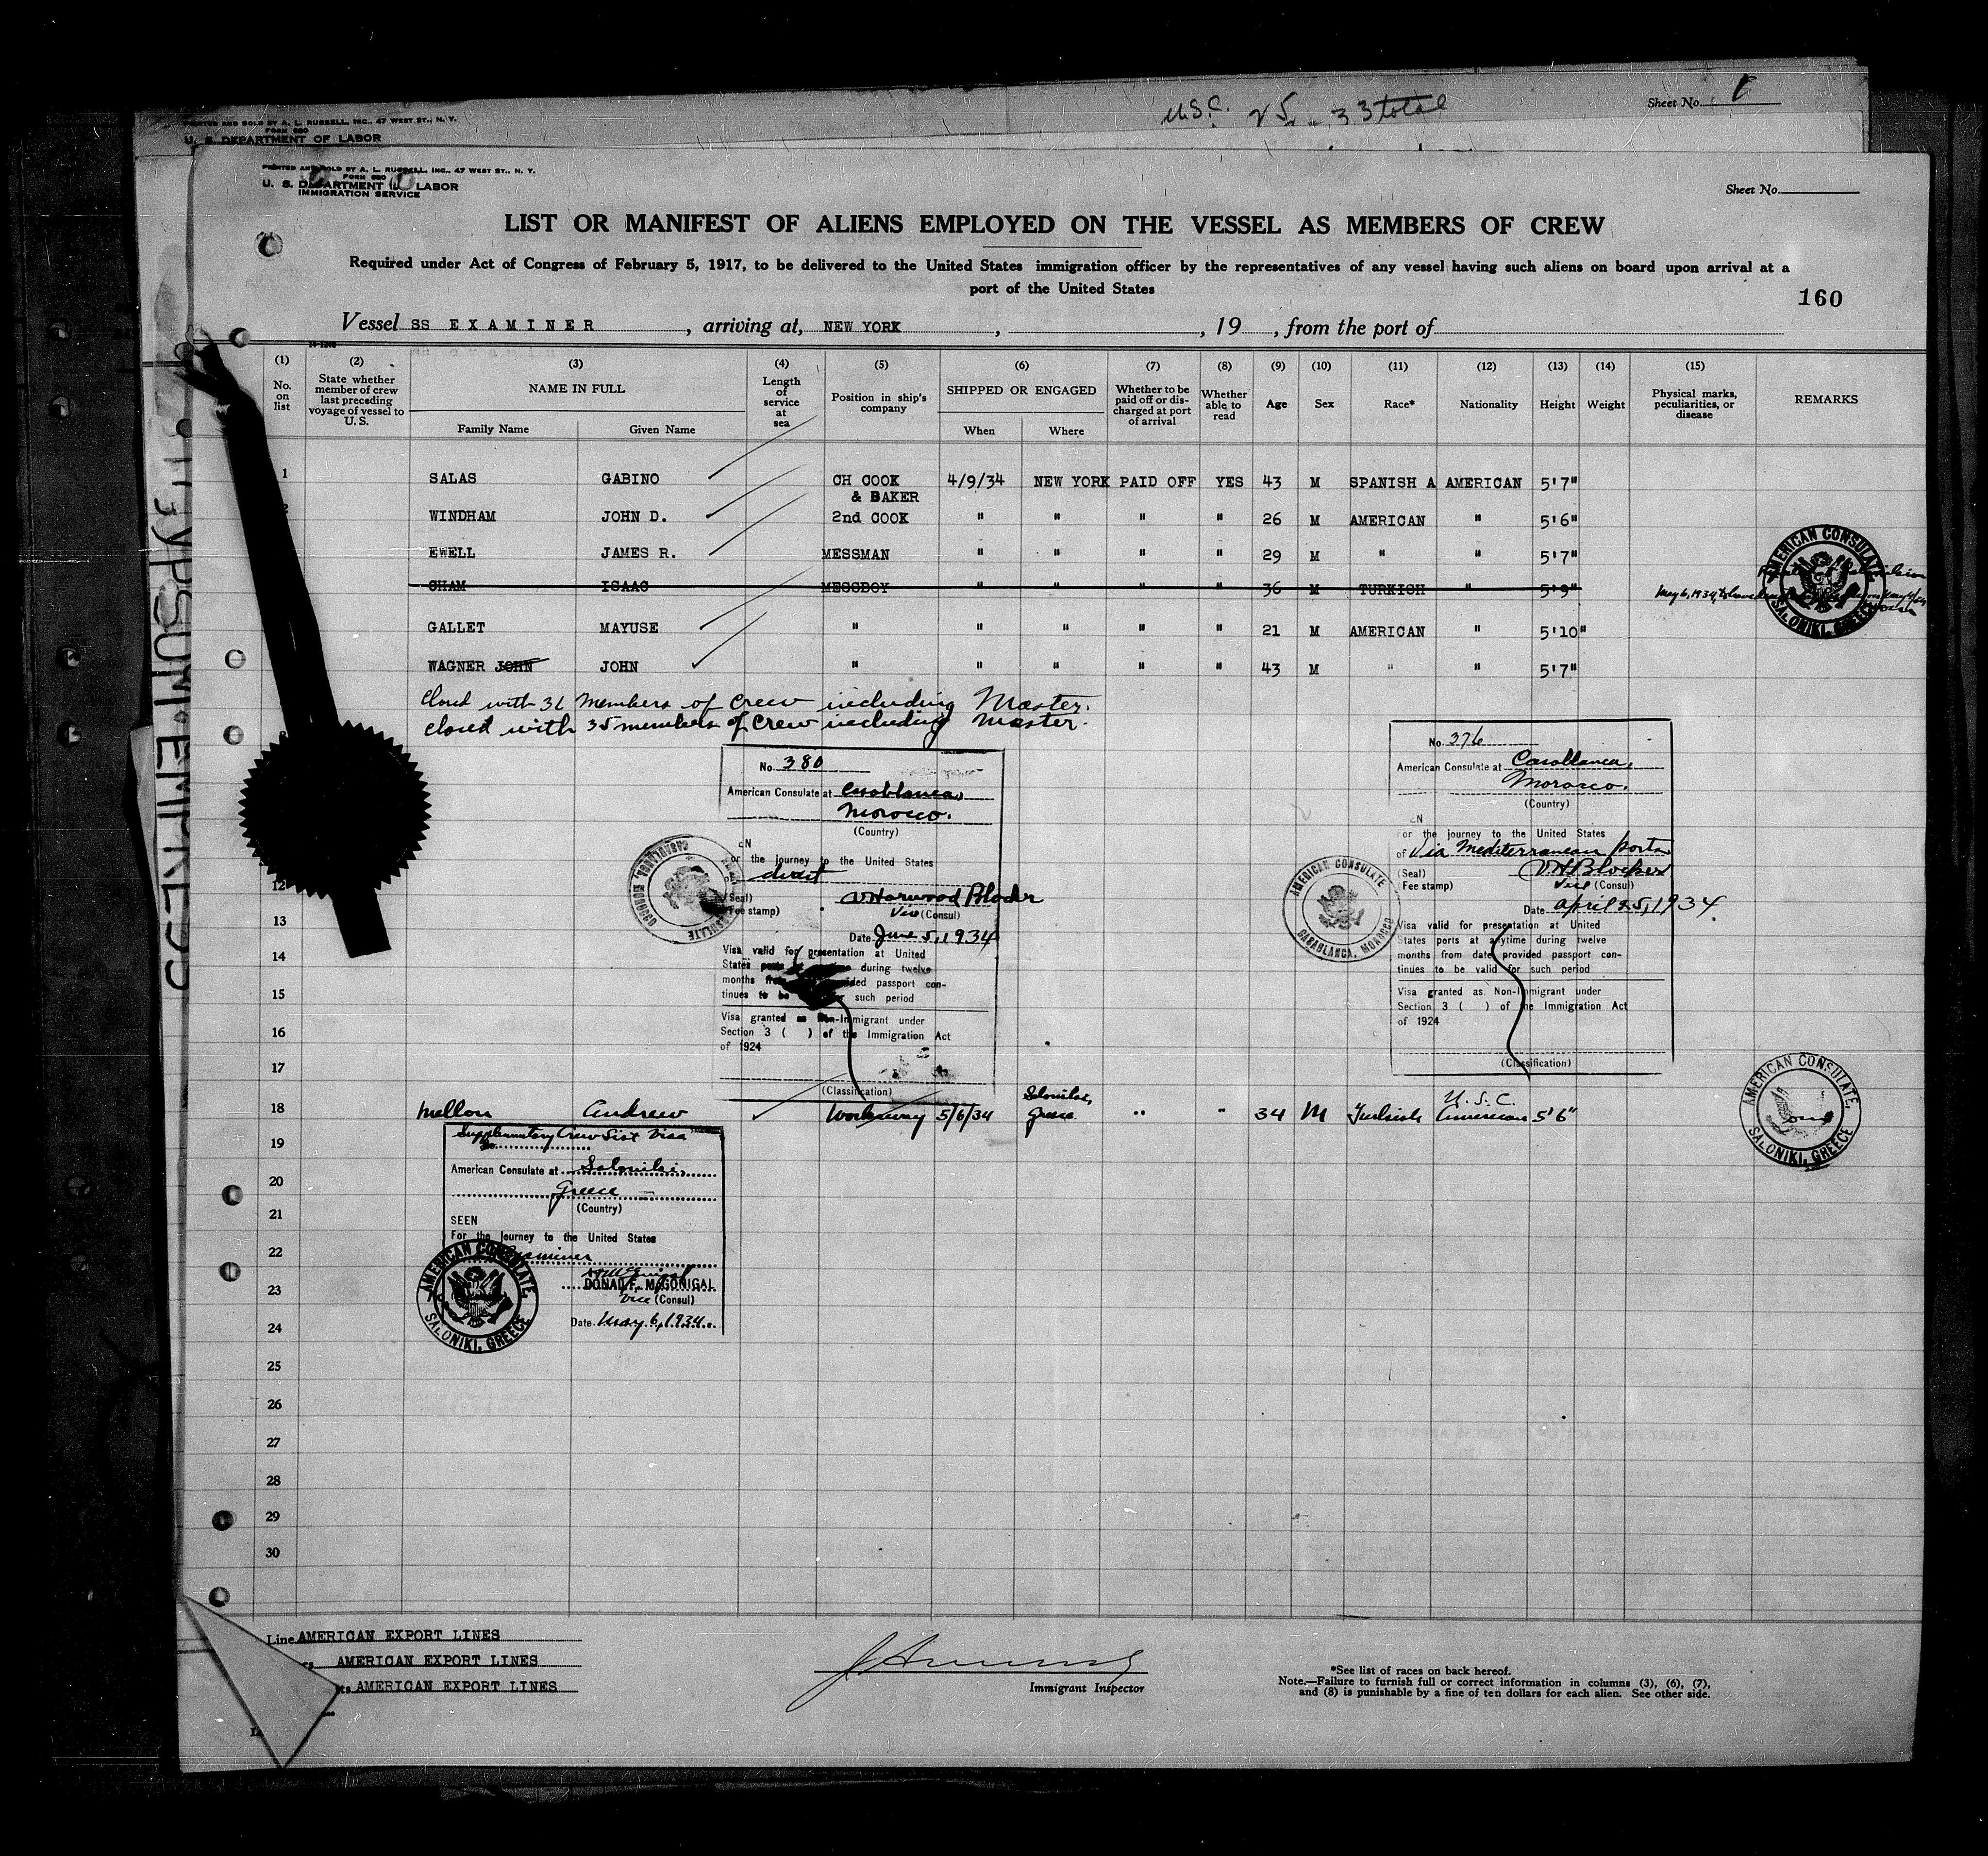 PRINTED AND SOLD BY A. L. RUSSELL, INC., 47 WEST ST., N. Y.
FORM 680
U. S. DEPARTMENT OF LABOR
U.S.C. 25 33 total
Sheet No.
PRINTED AND SOLD BY A. L. RUSSELL, INC., 47 WEST ST., N. Y.
FORM 680
U. S. DEPARTMENT OF LABOR
IMMIGRATION SERVICE
Sheet No.
LIST OR MANIFEST OF ALIENS EMPLOYED ON THE VESSEL AS MEMBERS OF CREW
Required under Act of Congress of February 5, 1917, to be delivered to the United States immigration officer by the representatives of any vessel having such aliens on board upon arrival at a
port of the United States
160
Vessel SS EXAMINER , arriving at, NEW YORK , , 19 , from the port of
(1) No. on list
(2) State whether member of crew last preceding voyage of vessel to U. S.
(3) NAME IN FULL Family Name Given Name
(4) Length of service at sea
(5) Position in ship's company
(6) SHIPPED OR ENGAGED When Where
(7) Whether to be paid off or discharged at port of arrival
(8) Whether able to read
(9) Age
(10) Sex
(11) Race*
(12) Nationality
(13) Height
(14) Weight
(15) Physical marks, peculiarities, or disease
REMARKS
1 SALAS GABINO CH COOK & BAKER 4/9/34 NEW YORK PAID OFF YES 43 M SPANISH A AMERICAN 5'7"
WINDHAM JOHN D. 2nd COOK " " " " 26 M AMERICAN " 5'6"
EWELL JAMES R. MESSMAN " " " " 29 M " " 5'7"
CHAM ISAAC MESSBOY " " " " 36 M TURKISH " 5'9"
May 6, 1934
AMERICAN CONSULATE SALONIKI, GREECE
GALLET MAYUSE " " " " " 21 M AMERICAN " 5'10"
WAGNER JOHN JOHN " " " " " 43 M " " 5'7"
Closed with 36 Members of Crew including Master.
closed with 35 members of Crew including Master.
No. 380
American Consulate at Casablanca,
Morocco.
(Country)
EN
For the journey to the United States
of direct
(Seal)
Fee stamp)
V Harwood Blocker
Vice (Consul)
Date June 5, 1934
Visa valid for presentation at United
States ports at during twelve
months from provided passport con-
tinues to be such period
Visa granted as Non-Immigrant under
Section 3 ( ) of the Immigration Act
of 1924
(Classification)
No. 376
American Consulate at Casablanca,
Morocco.
(Country)
EN
For the journey to the United States
of Via Mediterranean ports
(Seal)
(Fee stamp)
V H Blocker
Vice (Consul)
Date April 25, 1934
Visa valid for presentation at United
States ports at anytime during twelve
months from date provided passport con-
tinues to be valid for such period
Visa granted as Non-Immigrant under
Section 3 ( ) of the Immigration Act
of 1924
(Classification)
AMERICAN CONSULATE CASABLANCA, MOROCCO
12
13
14
15
16
17
18 Mellon Andrew Workaway 5/6/34 Saloniki, Greece " " 34 M Turkish U.S.C. American 5'6"
AMERICAN CONSULATE, SALONIKI, GREECE
19
20
21
22
23
24
25
26
27
28
29
30
Supplementary Crew List Visa
No.
American Consulate at Saloniki,
Greece
(Country)
SEEN
For the journey to the United States
Examiner
DONALD F. McGONIGAL
Vice (Consul)
Date May 6, 1934
AMERICAN CONSULATE, SALONIKI, GREECE
Line AMERICAN EXPORT LINES
AMERICAN EXPORT LINES
AMERICAN EXPORT LINES
Immigrant Inspector
*See list of races on back hereof.
Note.—Failure to furnish full or correct information in columns (3), (6), (7),
and (8) is punishable by a fine of ten dollars for each alien. See other side.